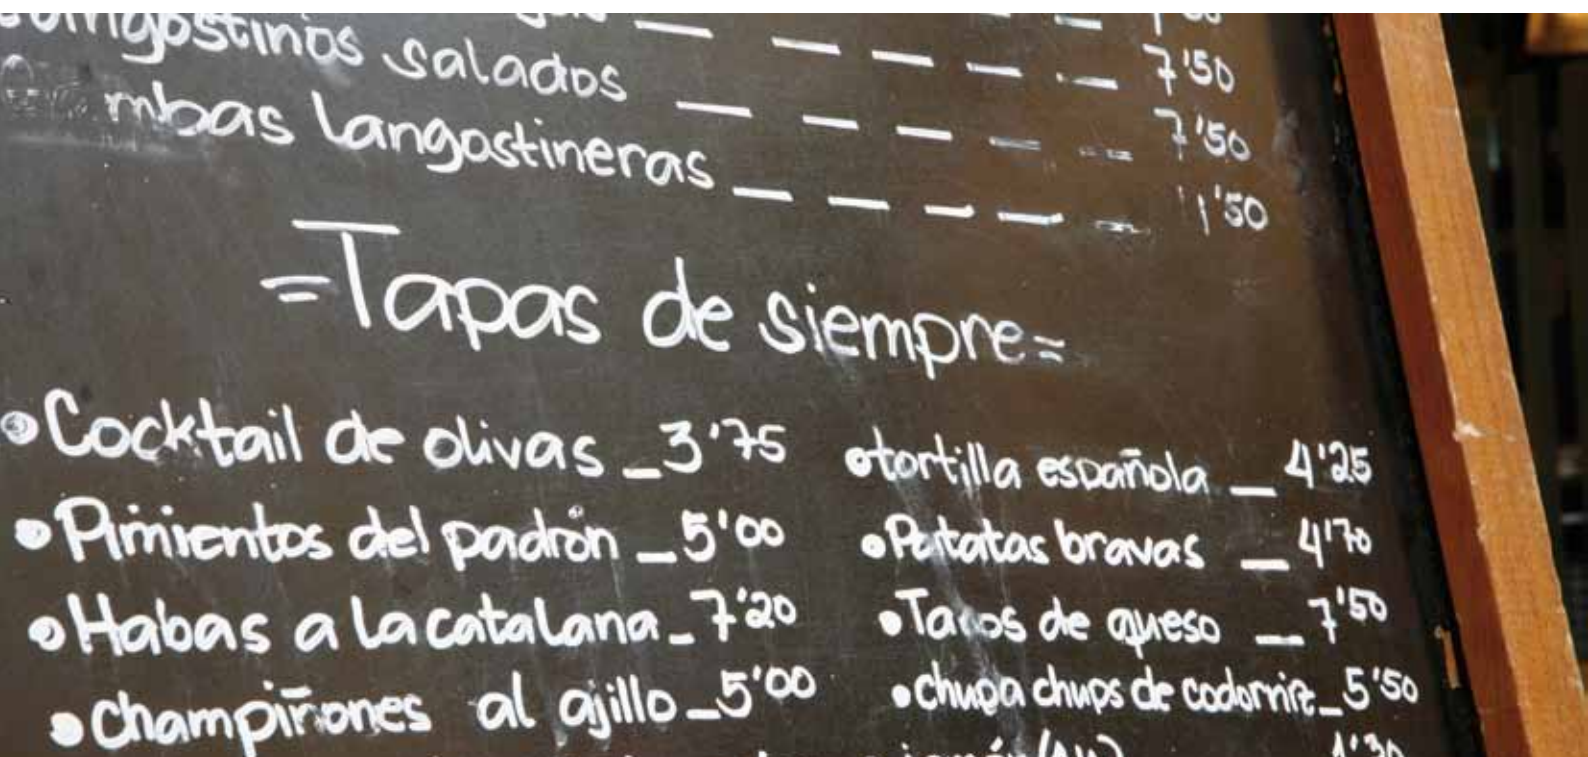 salados _ _ _ _ _ 7'50
langostineras _ _ _ _ _ 7'50
1'50
=Tapas de siempre=
•Cocktail de olivas _ 3'75
•Pimientos del padrón _ 5'00
•Habas a la catalana _ 7'20
•Champiñones al ajillo _ 5'00
•tortilla española _ 4'25
•Patatas bravas _ 4'70
•Tacos de queso _ 7'50
•Chupa chups de codorniz _ 5'50